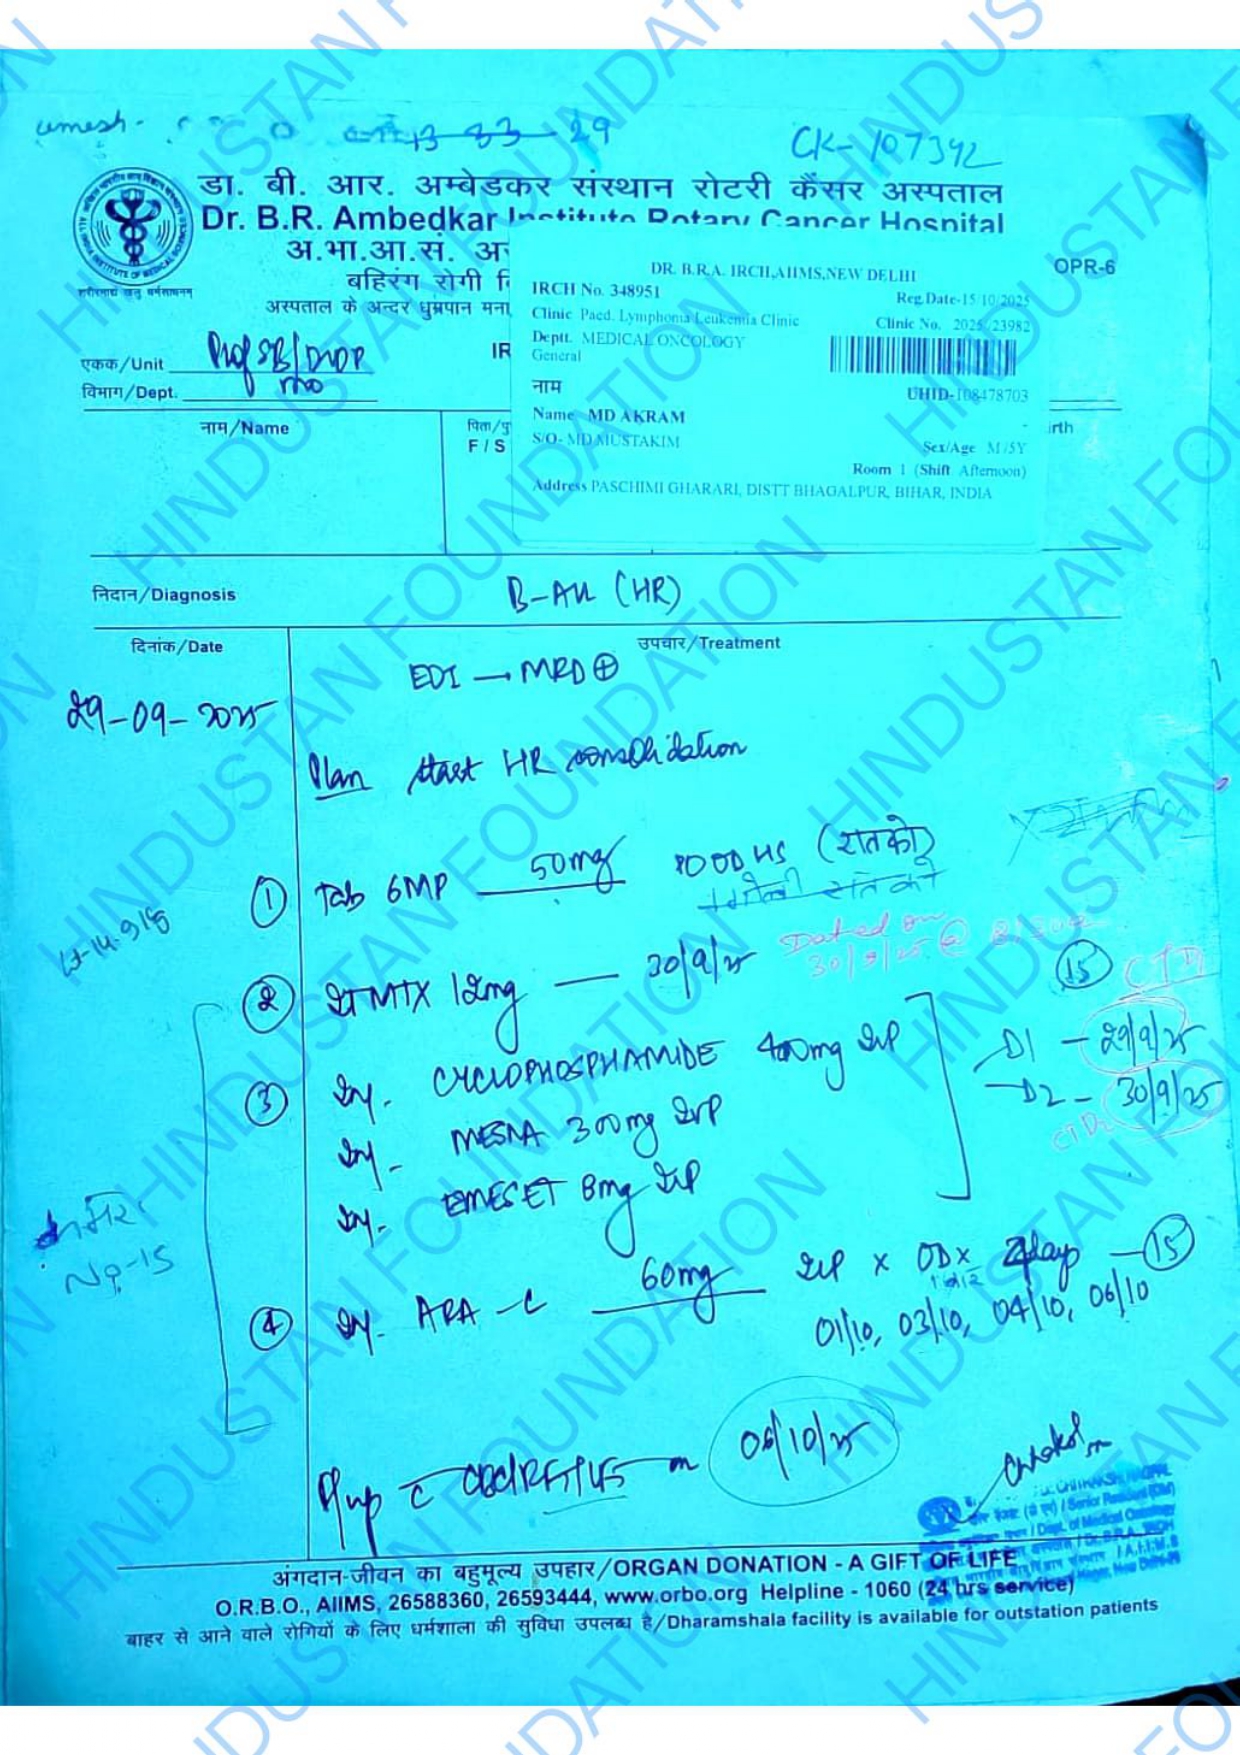 umesh-
83-29
CK-107342
डा. बी. आर. अम्बेडकर संस्थान रोटरी कैंसर अस्पताल
Dr. B.R. Ambedkar Institute Rotary Cancer Hospital
अ.भा.आ.सं. अ
OPR-6
बहिरंग रोगी वि
अस्पताल के अन्दर धुम्रपान मना
शरीरमाद्यं खलु धर्मसाधनम्
DR. B.R.A. IRCH,AIIMS,NEW DELHI
IRCH No. 348951
Reg.Date-15/10/2025
Clinic Paed. Lymphoma Leukemia Clinic
Clinic No. 2025/23982
Deptt. MEDICAL ONCOLOGY
General
UHID-108478703
नाम
Name MD AKRAM
S/O- MD MUSTAKIM
Sex/Age M/5Y
Room 1 (Shift Afternoon)
Address PASCHIMI GHARARI, DISTT BHAGALPUR, BIHAR, INDIA
एकक/Unit Prof SB/
IR
विभाग/Dept.
नाम/Name
पिता/पु
F / S
irth
निदान/Diagnosis B-ALL (HR)
दिनांक/Date
उपचार/Treatment
EOI → MRD ⊕
29-09-2025
Plan start HR consolidation
① Tab 6MP 50mg OD HS (रातको)
रात को
② IT MTX 12mg — 30/9/25
30/9/25 @
15
③ Inj. CYCLOPHOSPHAMIDE 400mg IVP
D1 - 29/9/25
D2 - 30/9/25
CTD2
Inj. MESNA 300mg IVP
Inj. EMESET 8mg IVP
No-15
④ Inj. ARA-C 60mg IVP x OD x 4days — 15
01/10, 03/10, 04/10, 06/10
F/up c CBC/RFT/LFT on 06/10/25
अंगदान-जीवन का बहुमूल्य उपहार/ORGAN DONATION - A GIFT OF LIFE
O.R.B.O., AIIMS, 26588360, 26593444, www.orbo.org Helpline - 1060 (24 hrs service)
बाहर से आने वाले रोगियों के लिए धर्मशाला की सुविधा उपलब्ध है/Dharamshala facility is available for outstation patients
HINDUSTAN FOUNDATION